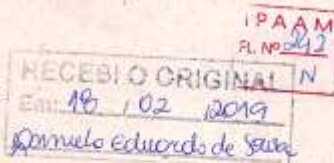 IPAAM
FL. Nº 242
N
RECEBI O ORIGINAL
Em: 18 / 02 / 2019
Eduardo de Sousa